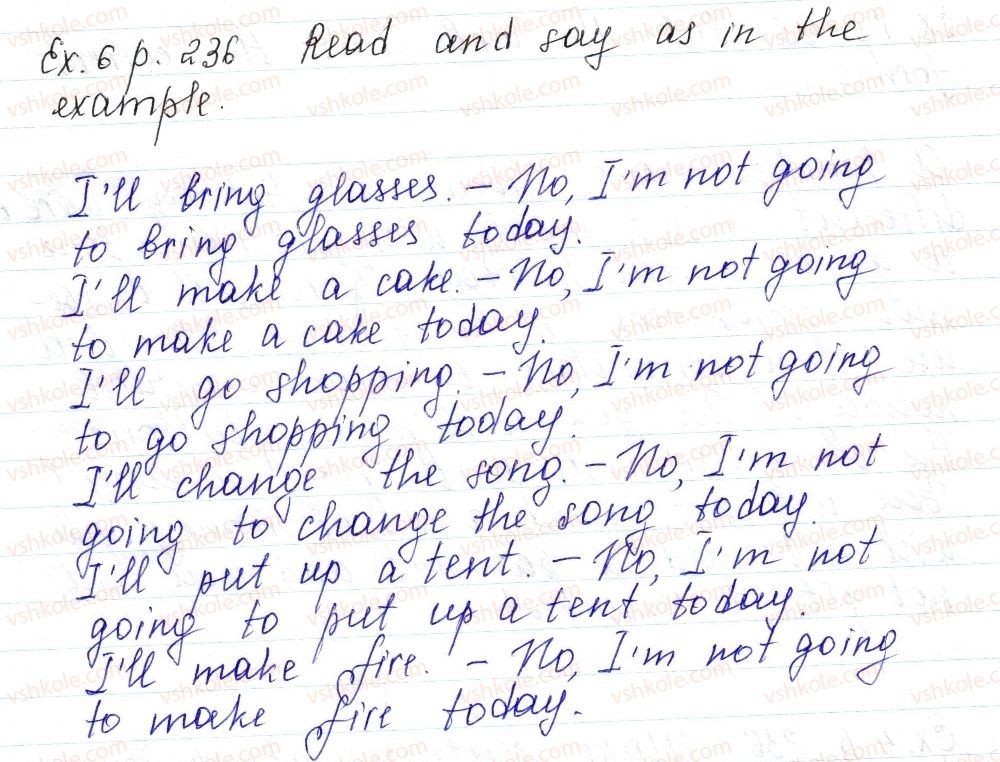 Ex. 6 p. 236 Read and say as in the
example.
I'll bring glasses. – No, I'm not going
to bring glasses today.
I'll make a cake. – No, I'm not going
to make a cake today.
I'll go shopping. – No, I'm not going
to go shopping today.
I'll change the song. – No, I'm not
going to change the song today.
I'll put up a tent. – No, I'm not
going to put up a tent today.
I'll make fire. – No, I'm not going
to make fire today.
vshkole.com